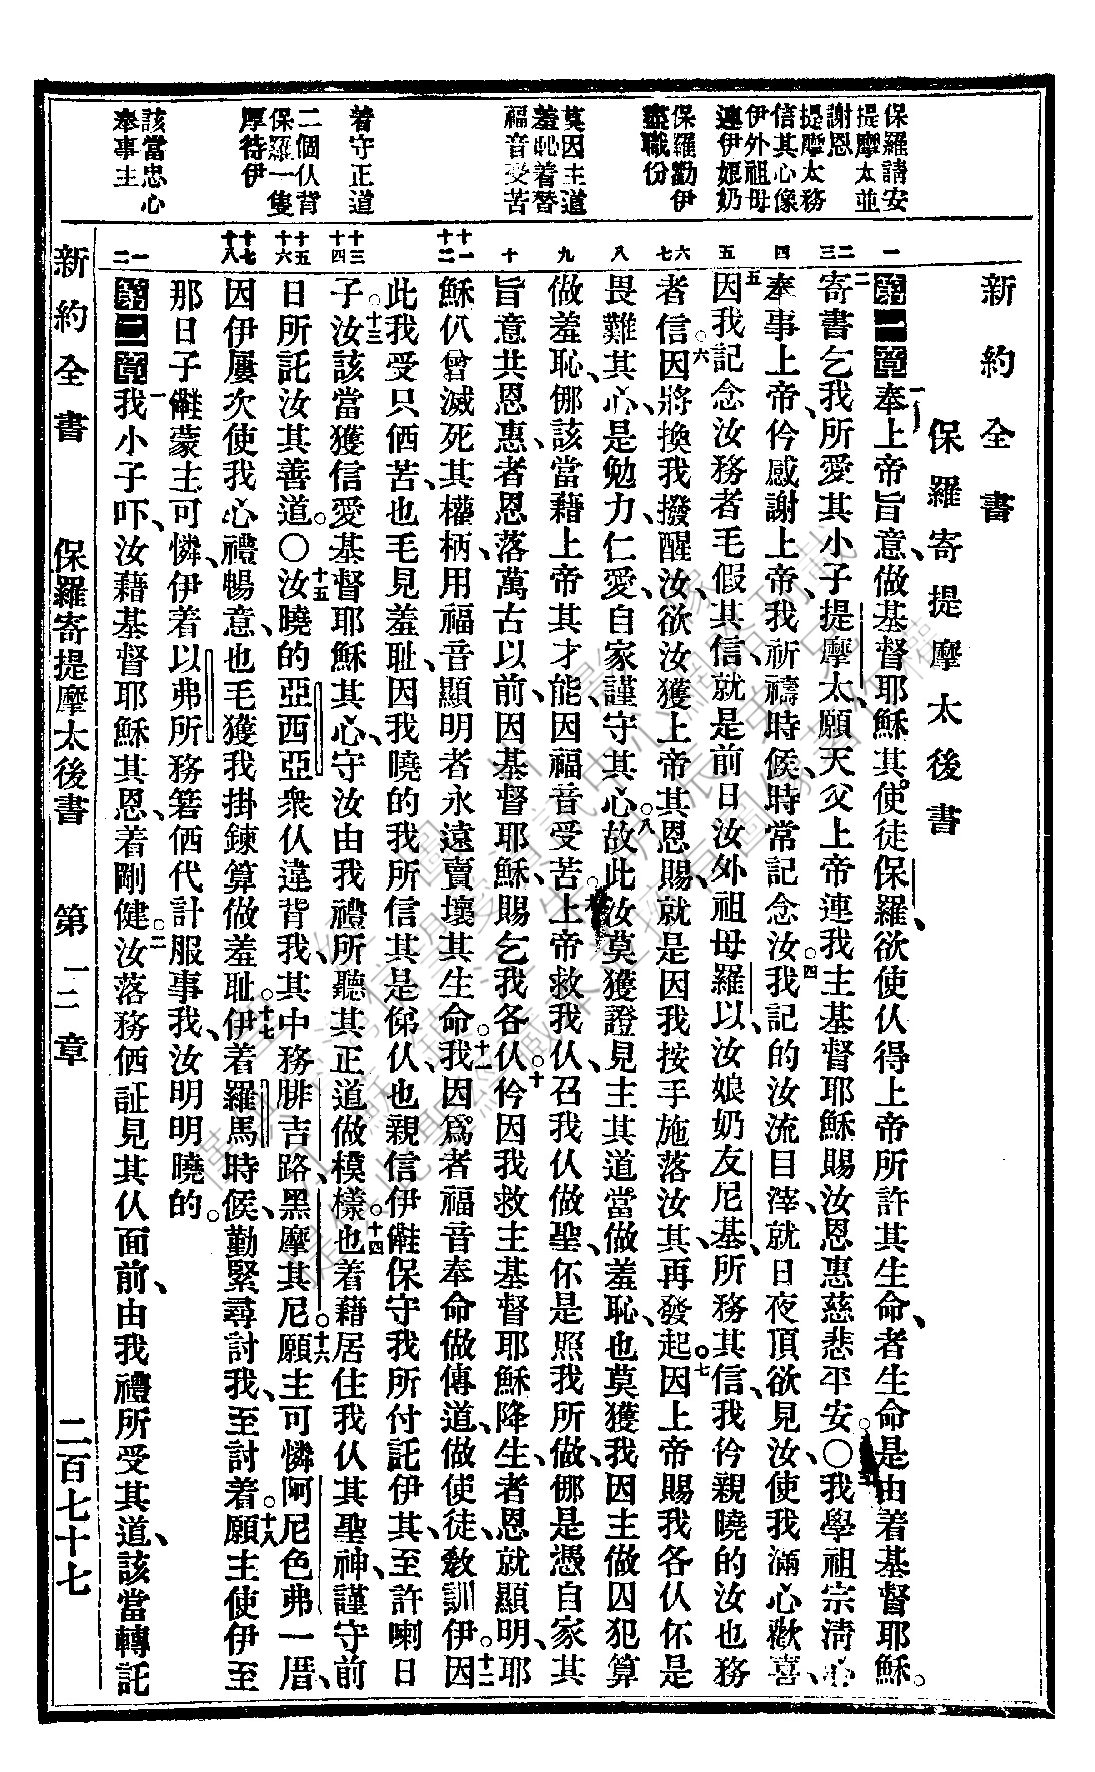 新約全書
保羅寄提摩太後書
第一章奉上帝旨意、做基督耶穌其使徒保羅、欲使仈得上帝所許其生命、者生命是由着基督耶穌。
寄書乞我所愛其小子提摩太、願天父上帝連我主基督耶穌賜汝恩惠慈悲平安。〇我學祖宗清心
奉事上帝、仱感謝上帝、我祈禱時候、時常記念汝。我記的汝流目滓、就日夜頂欲見汝、使我滿心歡喜、
因我記念汝務者毛假其信、就是前日汝外祖母羅以、汝娘奶友尼基、所務其信、我仱親曉的汝也務
者信。因將換我撥醒汝、欲汝獲上帝其恩賜、就是因我按手施落汝其、再發起。因上帝賜我各仈伓是
畏難其心、是勉力、仁愛、自家謹守其心。故此汝莫獲證見主其道當做羞恥、也莫獲我因主做囚犯算
做羞恥、㑚該當藉上帝其才能、因福音受苦。上帝救我仈、召我仈做聖、伓是照我所做、㑚是憑自家其
旨意共恩惠、者恩落萬古以前、因基督耶穌、賜乞我各仈。仱因我救主基督耶穌降生、者恩就顯明、耶
穌仈曾滅死其權柄、用福音顯明者永遠賣壞其生命。我因爲者福音奉命做傳道、做使徒、教訓伊。因
此我受只㑚苦、也毛見羞耻、因我曉的我所信其是俤仈、也親信伊䧹保守我所付託伊其、至許喇日
子。汝該當獲信愛基督耶穌其心、守汝由我禮所聽其正道做模樣。也着藉居住我仈其聖神、謹守前
日所託汝其善道。〇汝曉的亞西亞衆仈違背我、其中務腓吉路、黑摩其尼。願主可憐阿尼色弗一厝、
因伊屢次使我心禮暢意、也毛獲我掛鍊算做羞耻。伊着羅馬時候、勤緊尋討我、至討着。願主使伊至
那日子䧹蒙主可憐、伊着以弗所務箬㑚代計服事我、汝明明曉的。
第二章我小子吓、汝藉基督耶穌其恩、着剛健。汝落務㑚証見其仈面前、由我禮所受其道、該當轉託
一
二三
四
五
六七
八
九
十
十一十二
十三十四
十五十六
十七十八
一二
保羅請安
提摩太並
謝恩
提摩太務
信其心像
伊外祖母
連伊娘奶
保羅勸伊
盡職份
莫因主道
羞恥着替
福音受苦
着守正道
二個仈背
保羅一隻
厚待伊
該當忠心
奉事主
新約全書 保羅寄提摩太後書 第一二章 二百七十七